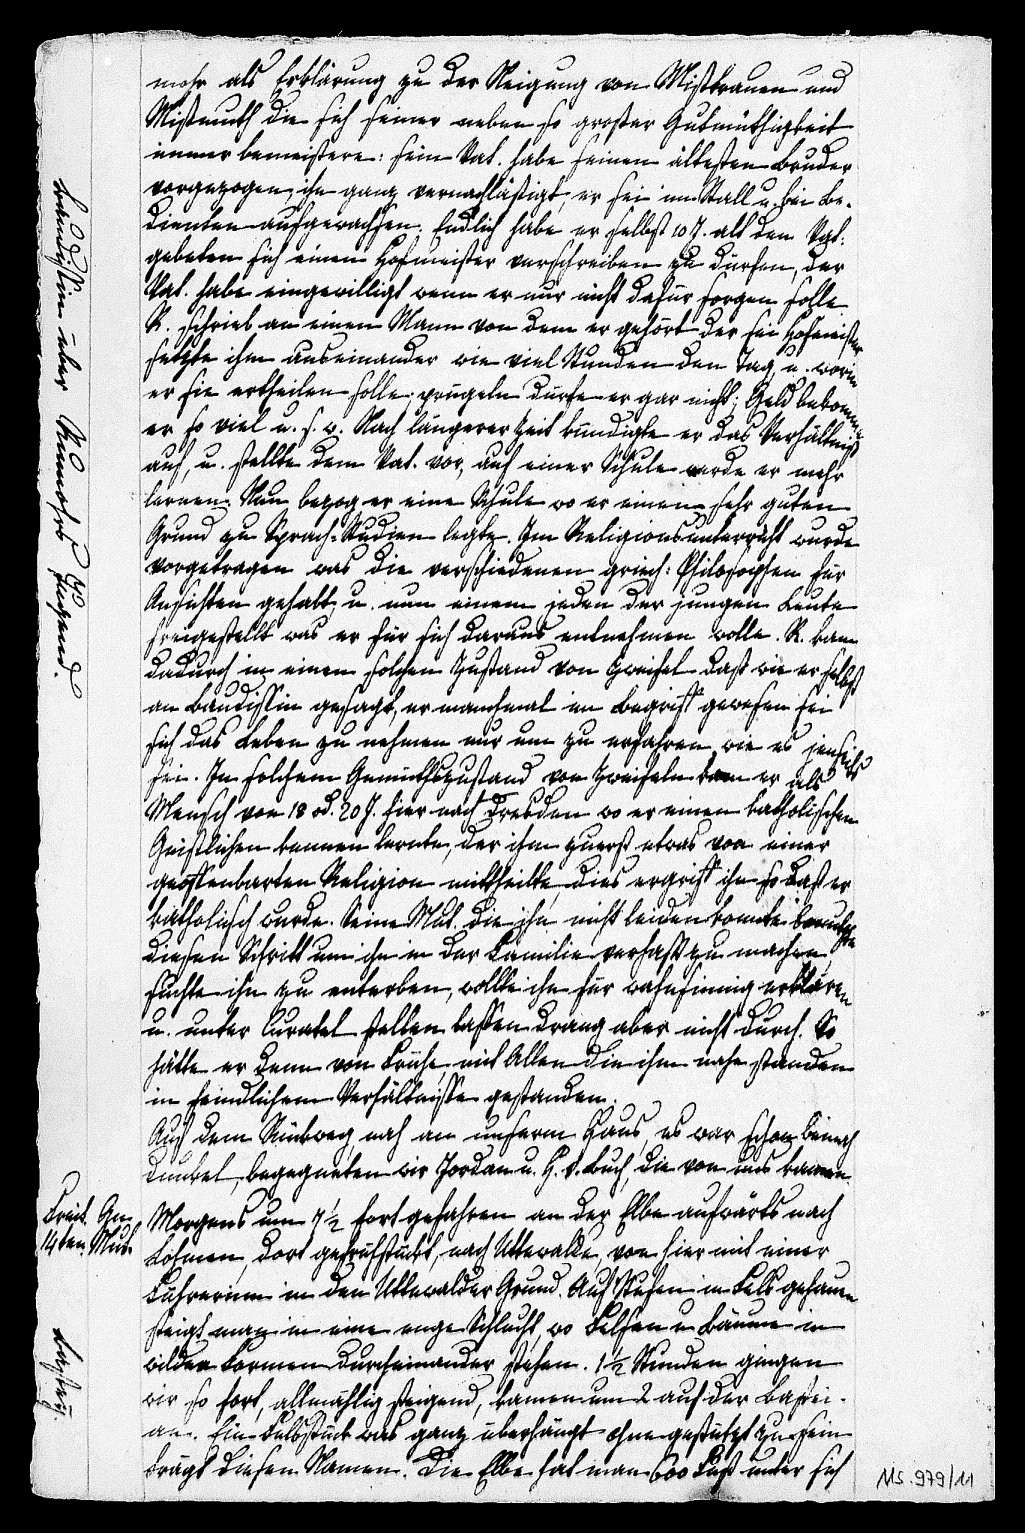 mehr als Erklärung zu der Neigung von Mißtrauen und
Mißmuth die sich seiner neben so großer Gutmüthigkeit
immer bemeistere: sein Vat. habe seinen ältesten Bruder
vorgezogen, ihn ganz vernachläßigt, er sei im Stall u. bei Be-
dienten aufgewachsen. Endlich habe er selbst 10 J. alt den Vat.
gebeten sich einen Hofmeister verschreiben zu dürfen, der
Vat. habe eingewilligt wenn er nur nicht dafür sorgen solle.
R. schrieb an einen Mann von dem er gehört der sei Hofmeister
setzte ihm auseinander wie viel Stunden den Tag u. worin
er sie ertheilen solle; prügeln dürfe er gar nicht; Geld bekomme
er so viel u. s. w. Nach längerer Zeit kündigte er das Verhältniß
auf, u. stellte dem Vat. vor, auf einer Schule werde er mehr
lernen. Nun bezog er eine Schule wo er einen sehr guten
Grund zu Sprach-Studien legte. Im Religionsunterricht wurde
vorgetragen was die verschiedenen griech: Philosophen für
Ansichten gehabt, u. nun einem jeden der jungen Leute
freigestellt was er für sich daraus entnehmen wolle. R. kam
dadurch in einen solchen Zustand von Zweifel daß wie er selbst
an Baudissin gesagt, er manchmal im Begriff gewesen sei
sich das Leben zu nehmen nur um zu erfahren wie es jenseits
sei. In solchem Gemüthszustand von Zweifeln kam er als
Mensch von 18 od. 20 J. hier nach Dresden wo er einen katholischen
Geistlichen kennen lernte, der ihm zuerst etwas von einer
geoffenbarten Religion mittheilte, dies ergriff ihn so daß er
katholisch wurde. Seine Mut. die ihn nicht leiden konnte benutzte
diesen Schritt um ihn in der Familie verhaßt zu machen,
suchte ihn zu enterben, wollte ihn für wahnsinnig erklären
u. unter Curatel stellen lassen drang aber nicht durch. So
hätte er denn von Frühe mit Allen die ihm nahe standen
in feindlichem Verhältnisse gestanden.
Auf dem Rückweg nah an unserm Haus, es war schon beinah
dunkel, begegneten wir Jordan u. H. v. Buch, die von uns kamen.
Morgens um 7 1/2 fortgefahren an der Elbe aufwärts nach
Lohmen, dort gefrühstückt, nach Uttewalde, von hier mit einer
Führerinn in den Uttewalder Grund. Auf Stufen in Fels gehauen
steigt man in eine enge Schlucht, wo Felsen u Bäume in
wilden Formen durcheinander stehen. 1 1/2 Stunden gingen
wir so fort, allmählig steigend, kamen um 2 auf der Bastei
an. Ein Felsstück was ganz überhängt ohne gestützt zu sein
trägt diesen Namen. Die Elbe hat man 600 Fuß unter sich
Baudissin über Rumohrs Jugend.
14ten
Bastey.
Ms. 979/11